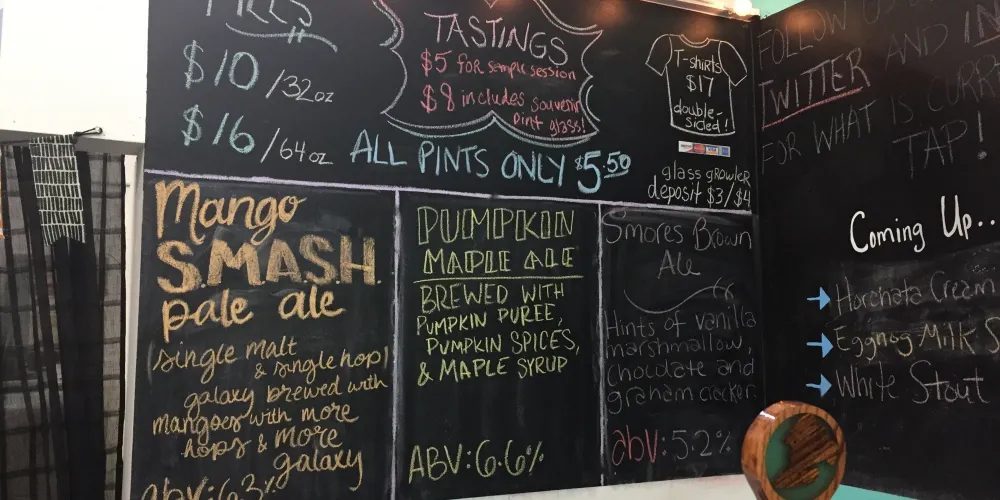 FILLS
$10/32oz
$16/64oz
TASTINGS
$5 for sample session
$8 includes souvenir
pint glass!
ALL PINTS ONLY $5.50
T-shirts
$17
double-
sided!
glass growler
deposit $3/$4
FOLLOW
TWITTER AND
FOR WHAT IS
TAP!
Mango
S.M.A.S.H.
pale ale
(single malt
& single hop)
galaxy brewed with
mangoes with more
hops & more
galaxy
abv: 6.3%
PUMPKIN
MAPLE ALE
BREWED WITH
PUMPKIN PUREE,
PUMPKIN SPICES,
& MAPLE SYRUP
ABV: 6.6%
Smores Brown
Ale
Hints of vanilla
marshmallow,
chocolate and
graham cracker.
abv: 5.2%
Coming Up...
Horchata Cream
Eggnog Milk S
White Stout